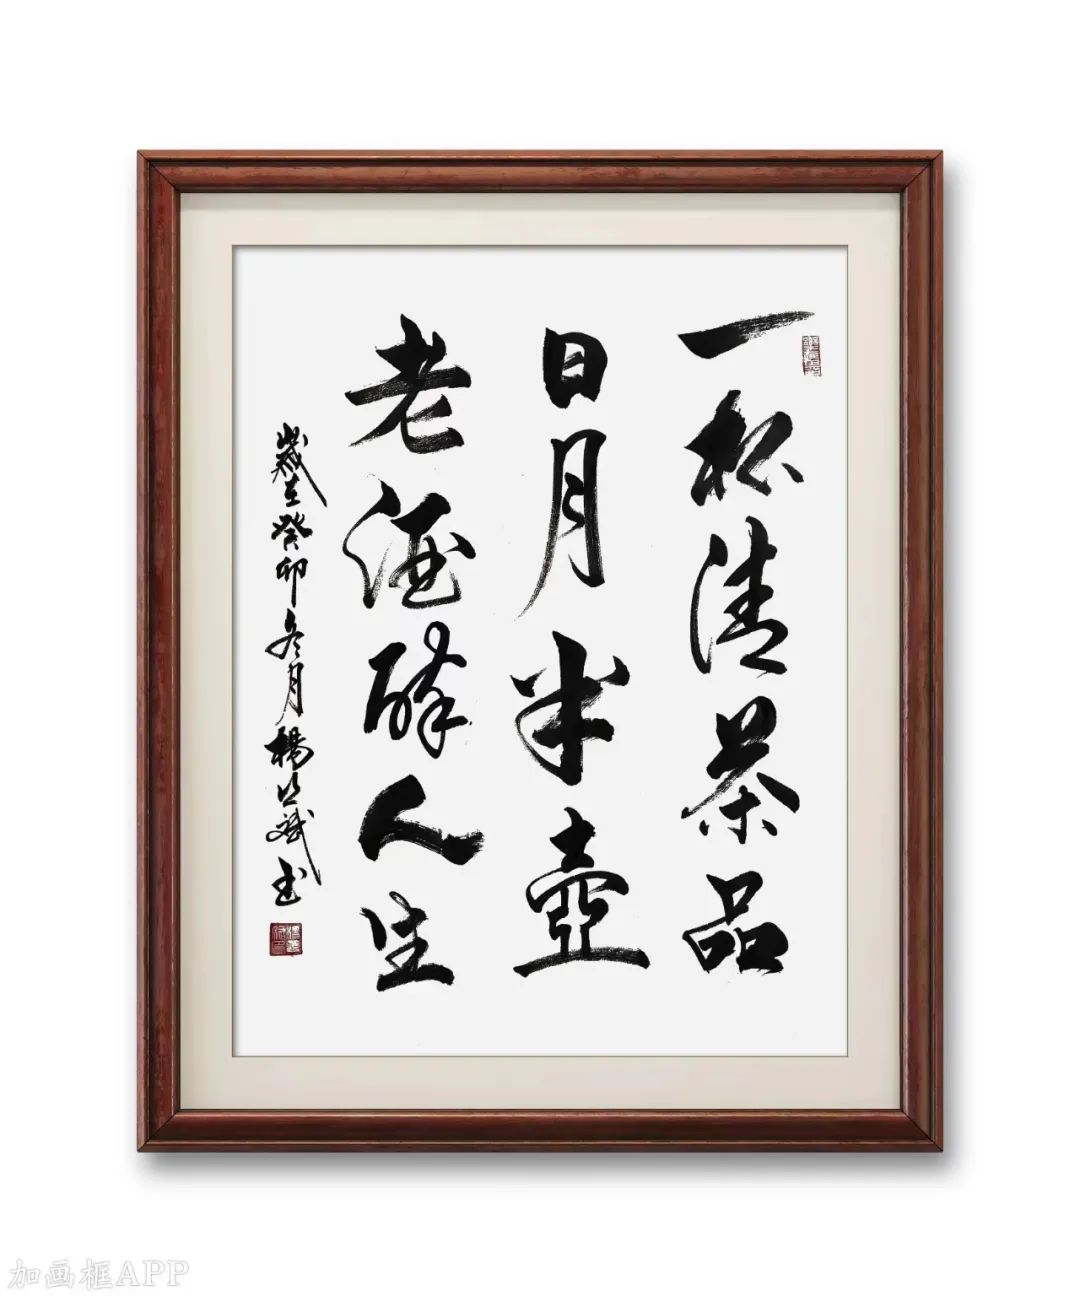 一杯清茶品
日月半壶
老酒醉人生
歲在癸卯冬月楊 斌書
加画框APP